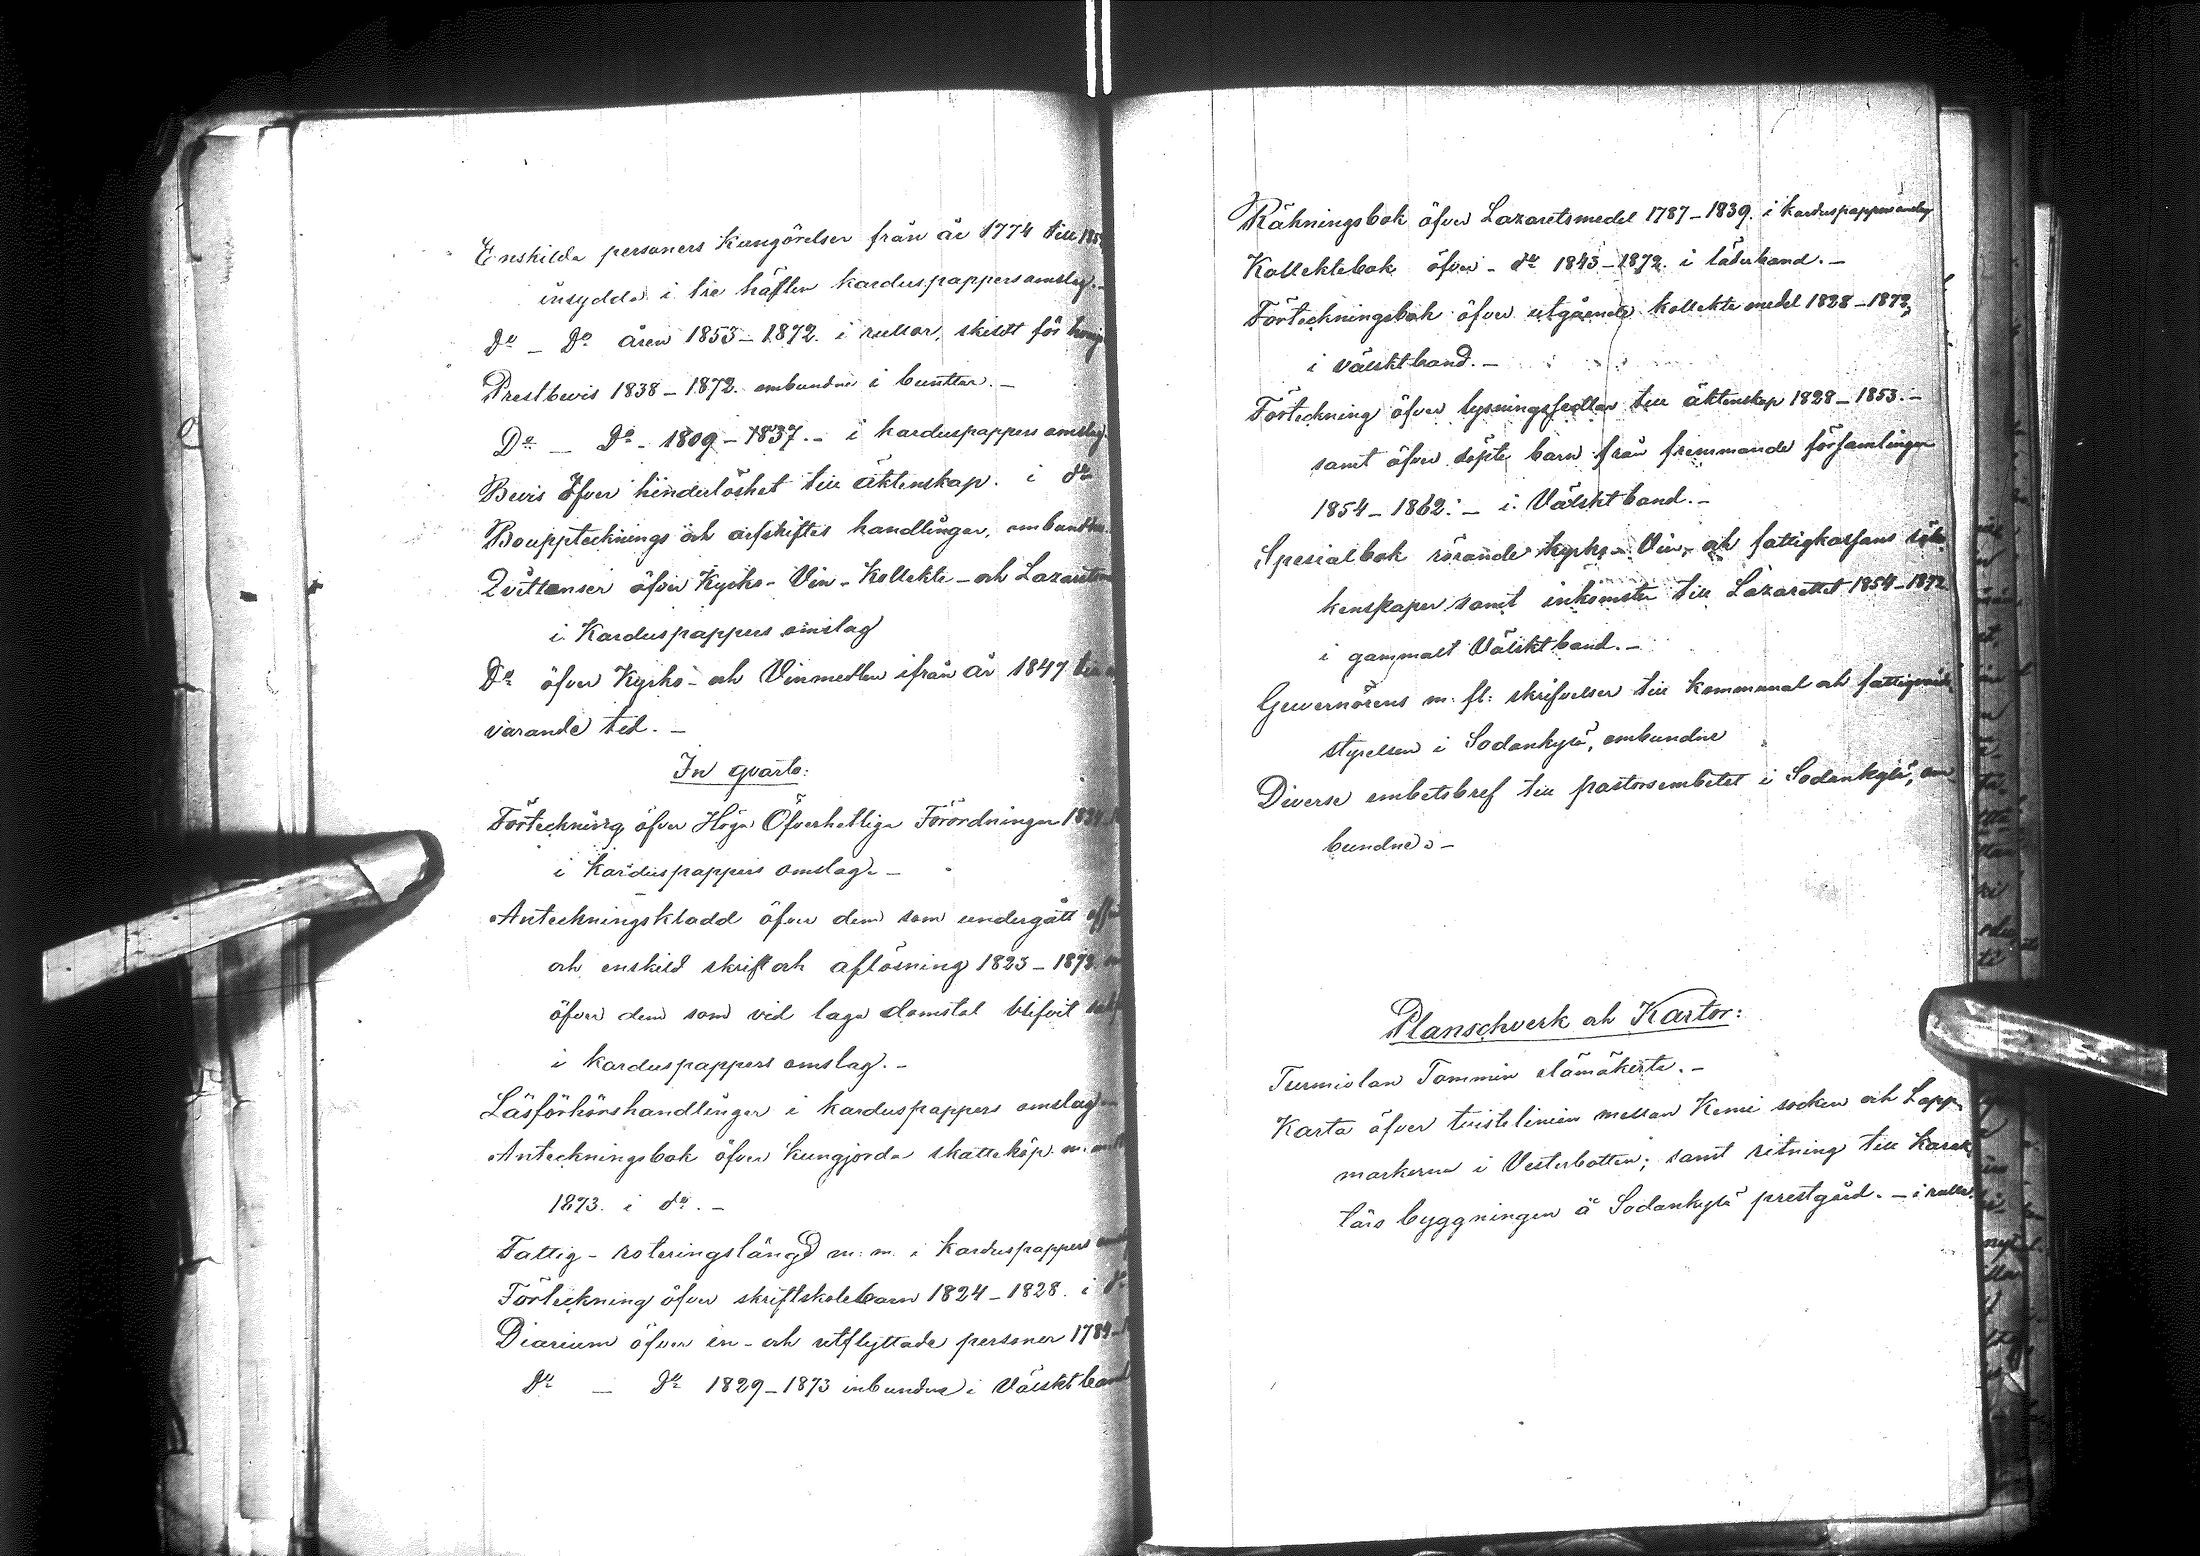 Enskilda personers kungörelser från år 1774 till 185
insydda i tre häften karduspappersomslag.
Do _ Do åren 1853–1872. i rullar, skildt för
Prestbevis 1838–1872. ombundne i buntar. –
Do _ Do – 1809–1837. – i karduspappers omslag.
Bevis öfver hinderlöshet till äktenskap. i do
Bouppteckings och arfskiftes handlingar, ombundne.
Qvittenser öfver Kyrko- Vin- Kollekte- och Lazaretts
i. Karduspappers omslag
Do öfver Kyrko- och Vinmedlen ifrån år 1847
varande tid. –
In qvarto:
Förteckning öfver Höga Öfverhetliga Förordningar 182
i karduspappers omslag. –
Anteckningskladd öfver dem som undergått
och enskild skrift och aflösning 1823–1872.
öfver dem som vid laga domstol blifvit
i karduspappers omslag. –
Läsförhörshandlingar i karduspappers omslag
Anteckningsbok öfver kungjorda skatteköp m.
1873. i do. –
Fattig- roteringslängd m: m. i karduspappers
Förteckning öfver skriftskolebarn 1824–1828. i do
Diarium öfver in- och utflyttade personer 1784–
do _ do 1829–1873 inbundne i Välsktband
Räkningsbok öfver Lazarettsmedel 1787–1839. i karduspappersomslag
Kollektebok öfver – do 1843–1872. i läderband. –
Förteckningsbok öfver utgående kollekte medel 1828–1872,
i välsktband. –
Förteckning öfver lysningssedlar till äktenskap 1828–1853. –
samt öfver döpte barn från fremmande församlingar
1854–1862. – i. Välsktband. –
Spesialbok rörande kyrko- Vin- och fattigkassans räk
kenskaper samt inkomster till Lazarettet 1854–1872
i gammalt Välsktband. –
Guvernörens m. fl: skrifvelser till kommunal och fattigvårds
styrelsen i Sodankylä, ombundne
Diverse embetsbref till pastorsembetet i Sodankylä, om
bundne. –
Planschverk och Kartor:
Turmiolan Tommin elämäkerta. –
Karta öfver tvistelinien mellan Kemi socken och Lapp
markerna i Vesterbotten; samt ritning till Karak
tärs byggningen å Sodankylä prestgård. – i rullar.